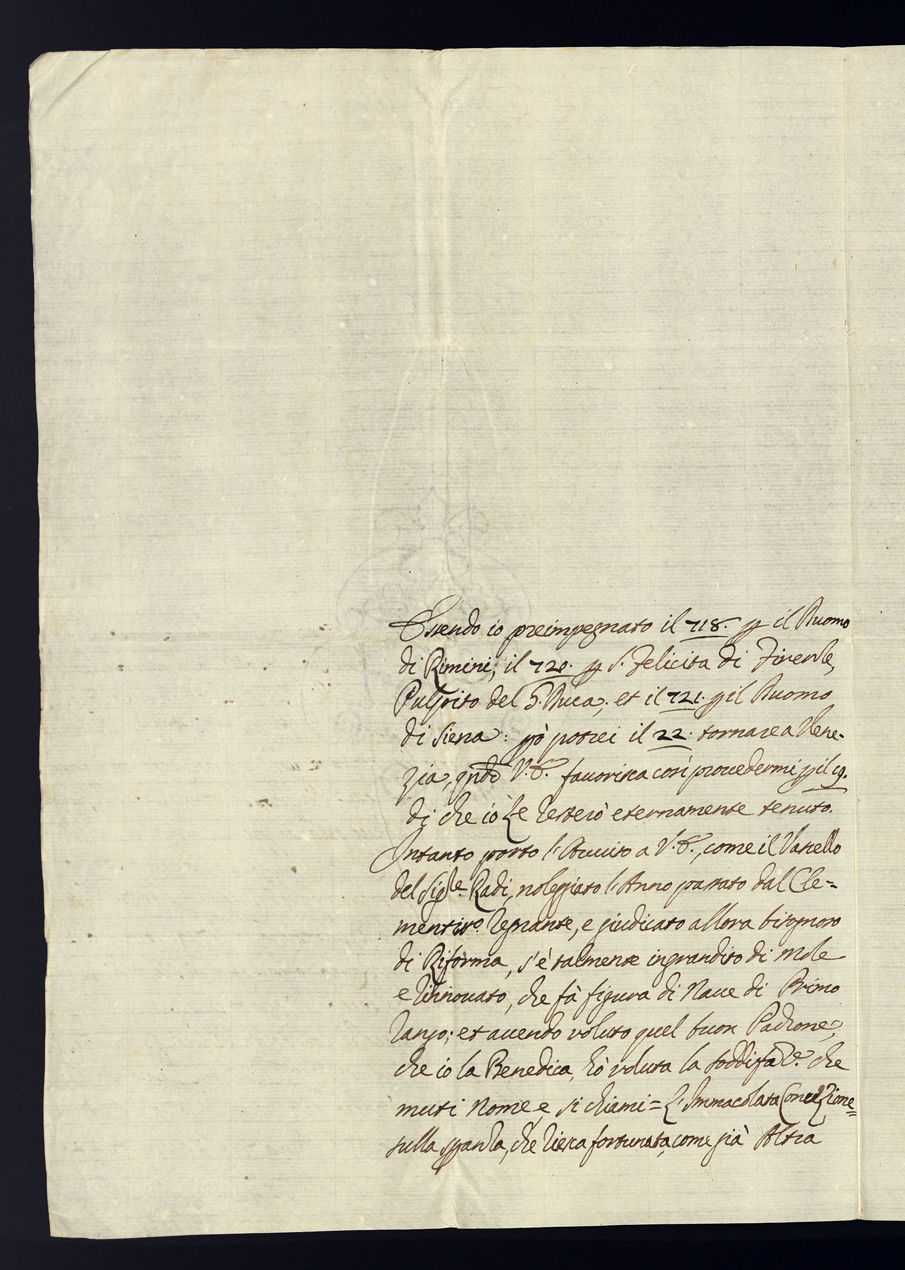 Essendo io preimpegnato il 718. p il Duomo
di Rimini, il 720. p S. Felicita di Firenze,
Pulpito del S. Duca, et il 721. p il Duomo
di Siena: pò potrei il 22. tornare a Vene-
zia, qndo V.E. favorisca così procedermi p il 19.
di che io Le resterò eternamente tenuto.
Intanto porto l'Avviso a V.E., come il Vascello
del Sigre Radi, noleggiato l'Anno passato dal Cle-
mentino regnante, e giudicato allora bisognoso
di Riforma, s'è talmente ingrandito di mole
e rinnovato, che fà figura di Nave di Primo
rango; et avendo voluto quel buon Padrone,
che io la Benedica, hò voluta la soddisfane. che
muti Nome, e si chiami = L'Immacolata Concezione =
sulla speranza, che riesca fortunata, come già Altra